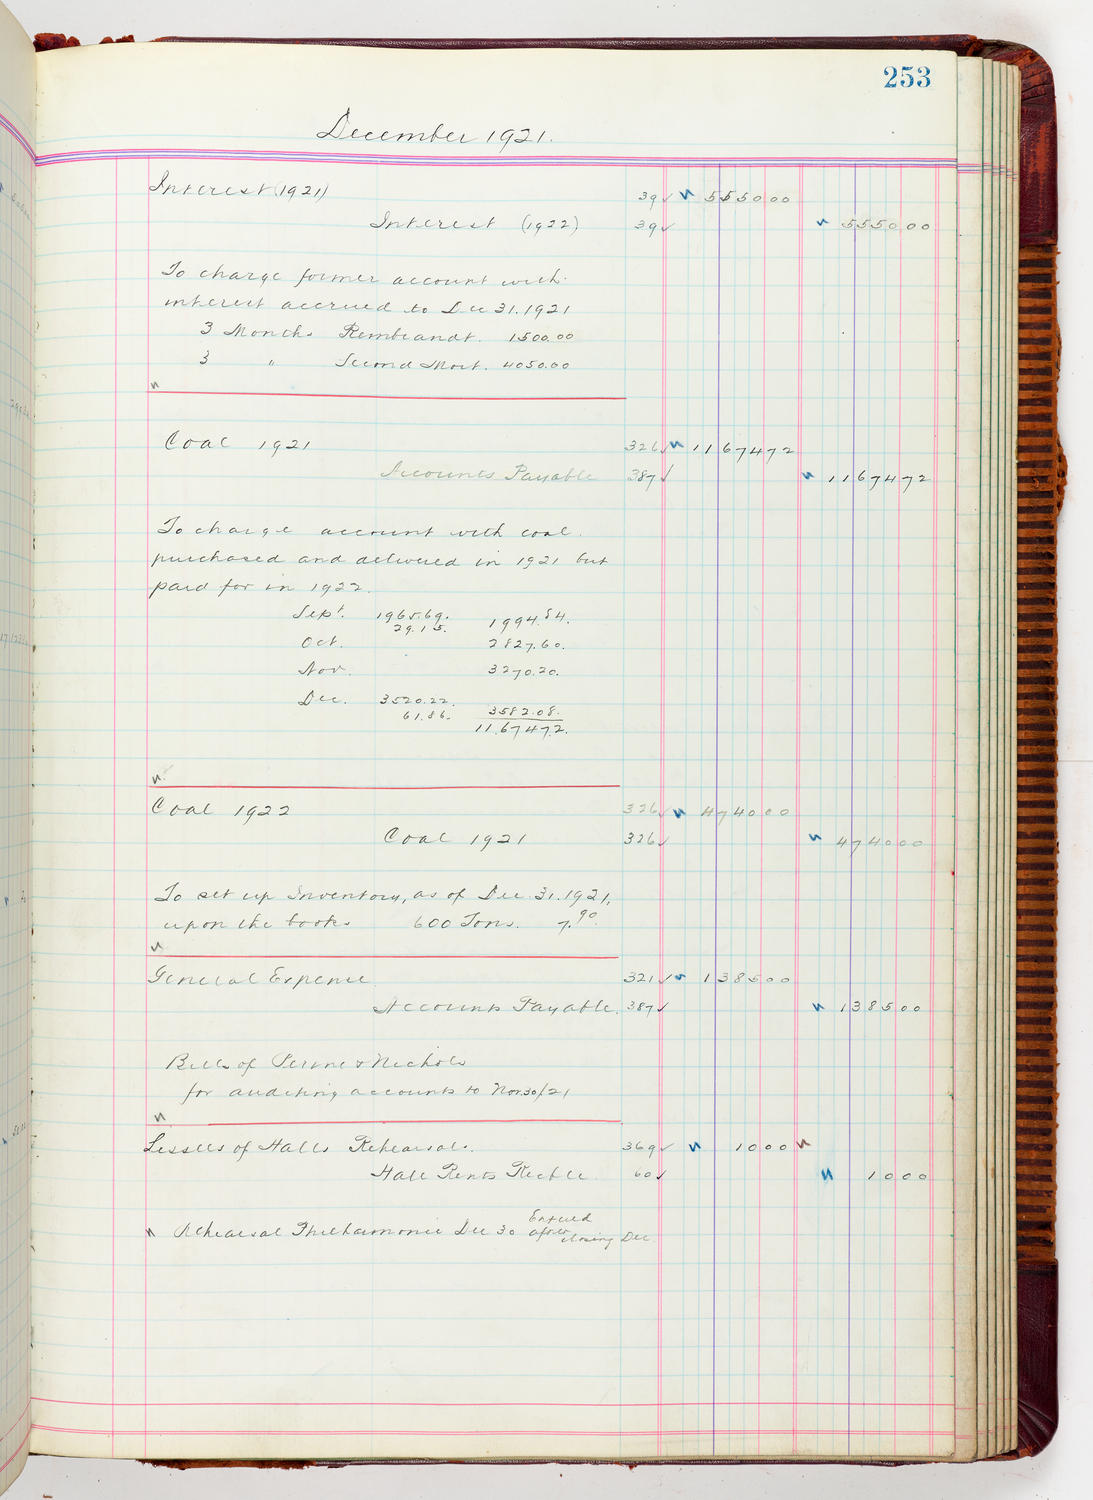 253
December 1921.
Interest (1921) 39 ✓ 5550 00
Interest (1922) 39 ✓ 5550 00
To charge former account with
interest accrued to Dec 31. 1921
3 Months Rembrandt. 1500.00
3 " Second Mort. 4050.00
Coal 1921 326 ✓ 11674 72
Accounts Payable 387 ✓ 11674 72
To charge account with coal
purchased and delivered in 1921 but
paid for in 1922.
Sept. 1965.69. 1994.84.
29.15.
Oct. 2827.60.
Nov. 3270.20.
Dec. 3520.22.
61.86. 3582.08.
11.674.72.
Coal 1922 326 ✓ 4740 00
Coal 1921 326 ✓ 4740 00
To set up Inventory, as of Dec. 31. 1921,
upon the books 600 Tons. 7.90.
General Expense 321 ✓ 1385 00
Accounts Payable. 387 ✓ 1385 00
Bills of Perine & Nichols
for auditing accounts to Nov 30/21
Lessees of Halls Rehearsal. 369 ✓ 10 00
Hall Rents Recble 60 ✓ 10 00
Rehearsal Philharmonic Dec 30 Entered
after
closing Dec